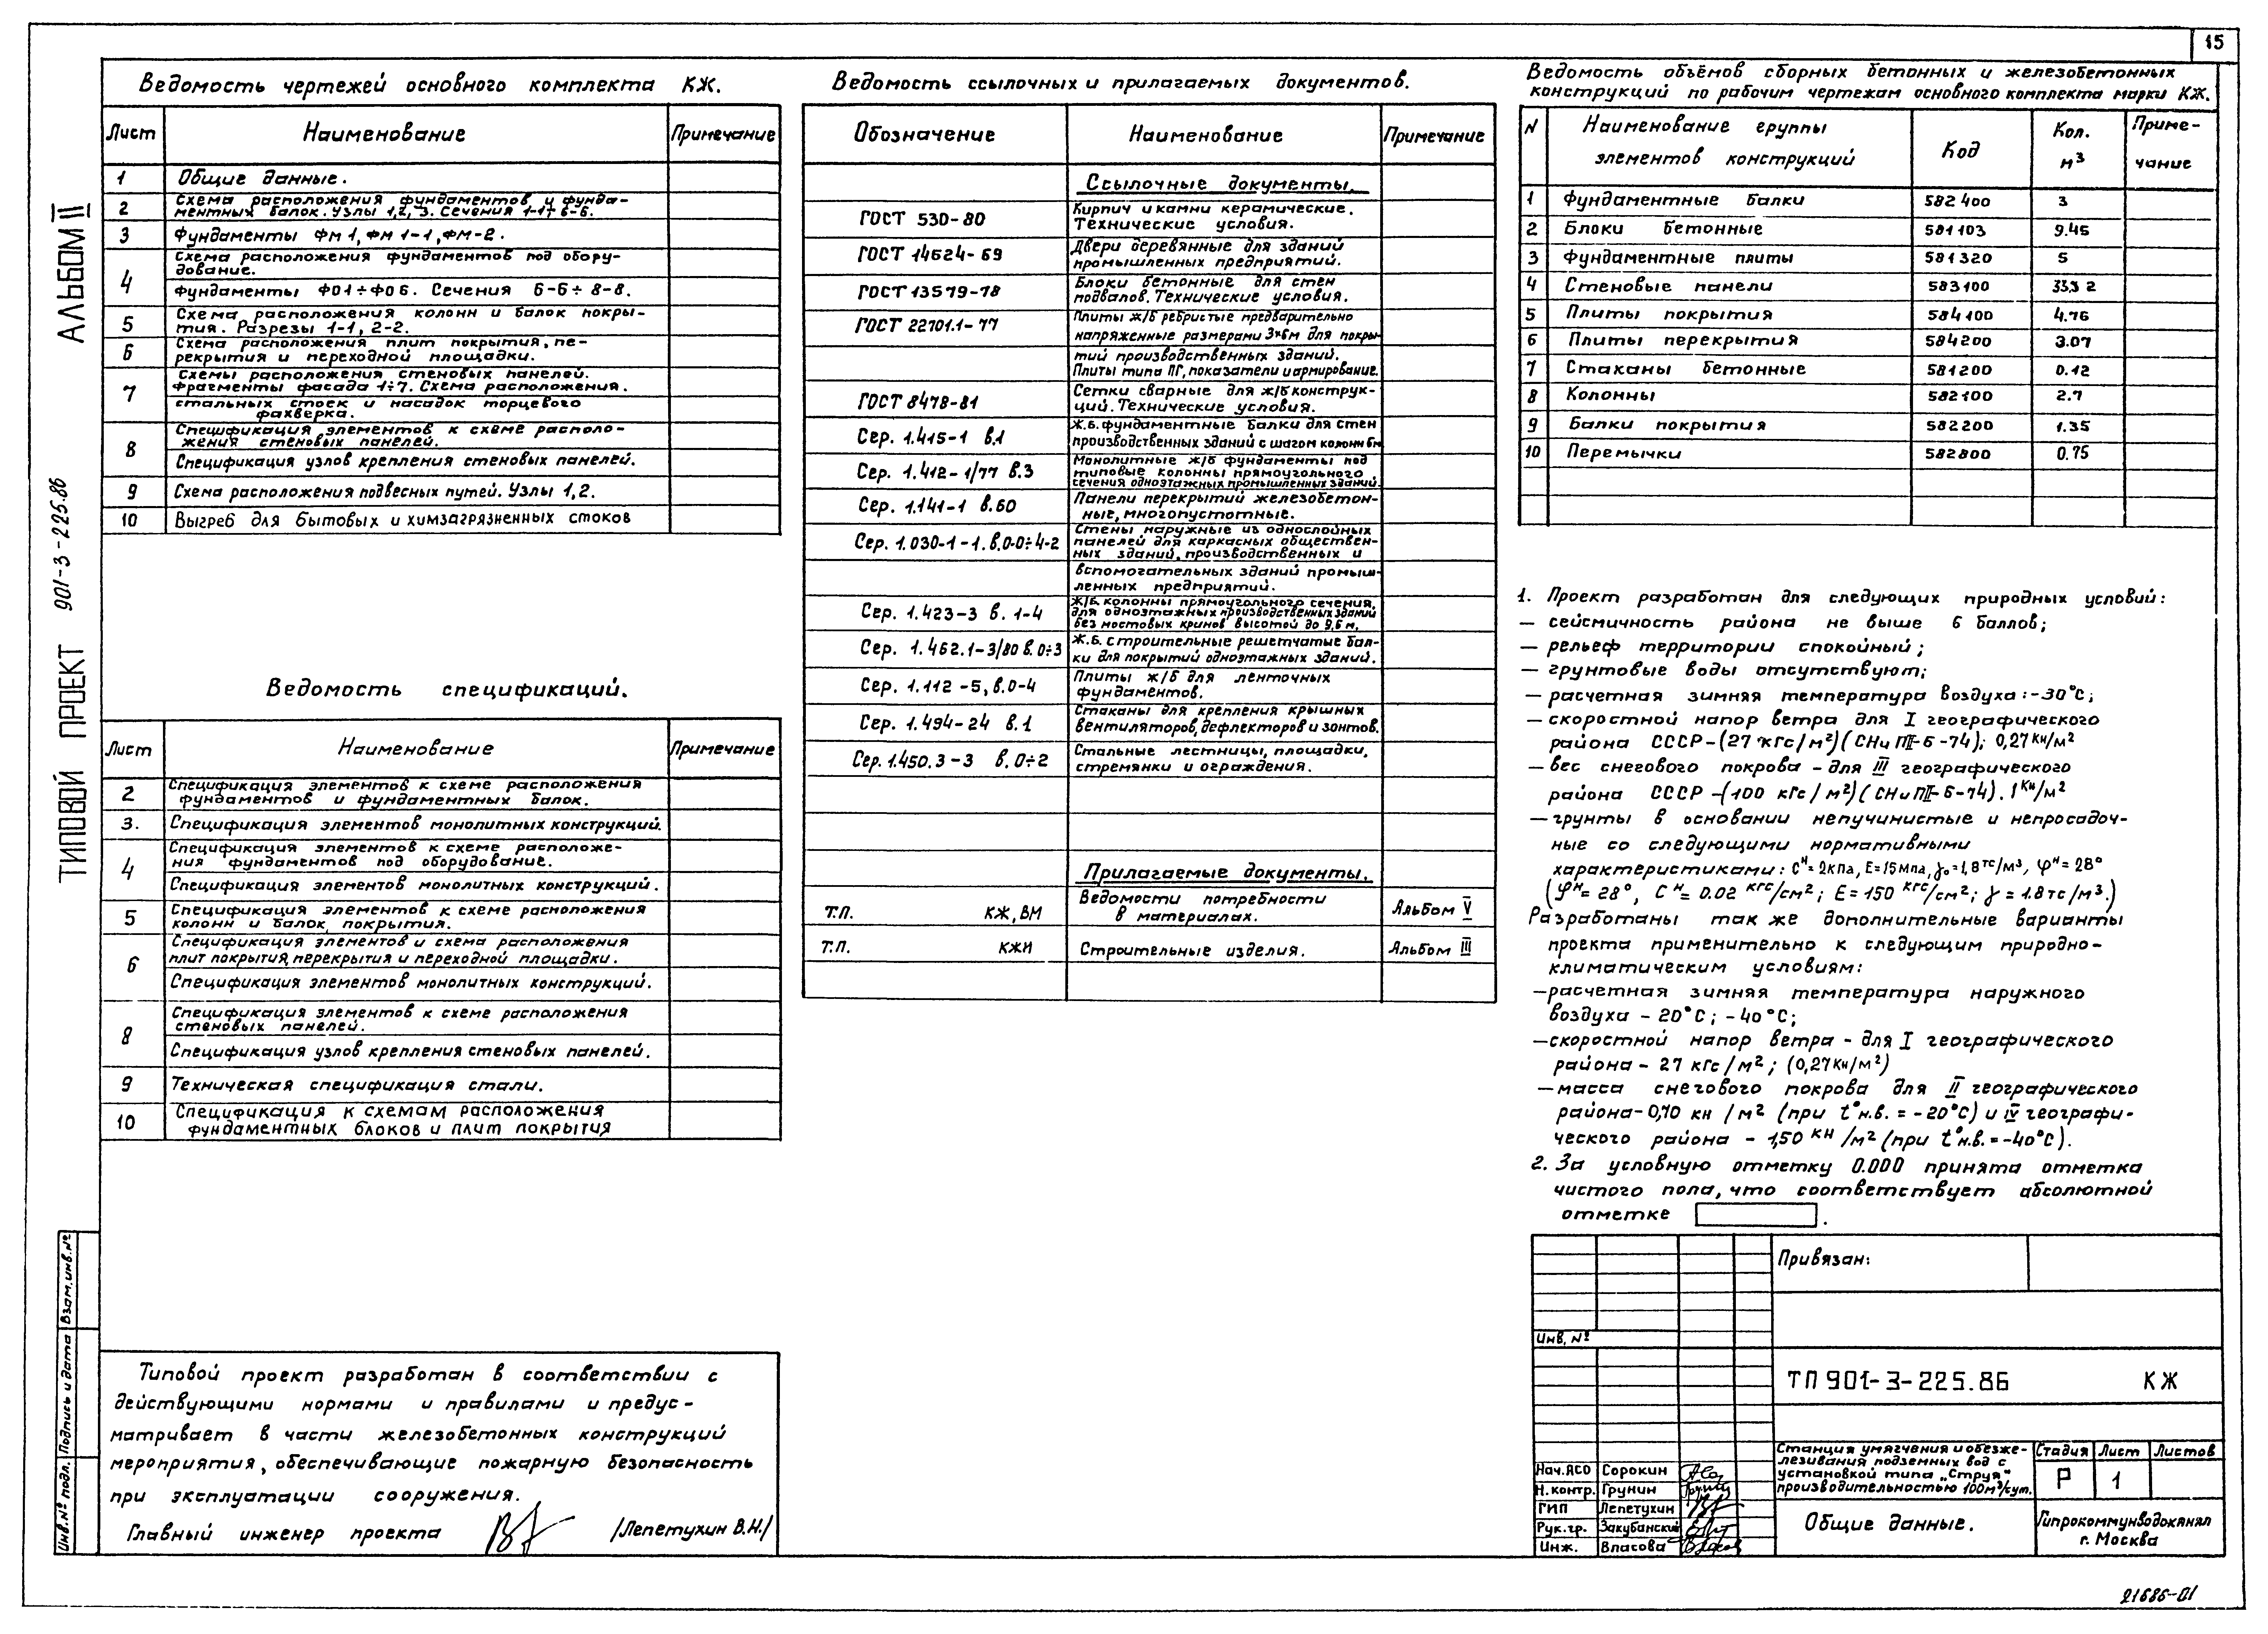 15
АЛЬБОМ II
ТИПОВОЙ ПРОЕКТ 901-3-225.86
Ведомость чертежей основного комплекта КЖ.
Лист Наименование Примечание
1 Общие данные.
2 Схема расположения фундаментов и фунда-
ментных балок. Узлы 1,2,3. Сечения 1-1÷6-6.
3 Фундаменты ФМ1, ФМ1-1, ФМ-2.
4 Схема расположения фундаментов под обору-
дование.
Фундаменты ФО1÷ФО6. Сечения 6-6÷8-8.
5 Схема расположения колонн и балок покры-
тия. Разрезы 1-1, 2-2.
6 Схема расположения плит покрытия, пе-
рекрытия и переходной площадки.
7 Схемы расположения стеновых панелей.
Фрагменты фасада 1÷7. Схема расположения.
стальных стоек и насадок торцевого
фахверка.
8 Спецификация элементов к схеме располо-
жения стеновых панелей.
Спецификация узлов крепления стеновых панелей.
9 Схема расположения подвесных путей. Узлы 1,2.
10 Выгреб для бытовых и химзагрязненных стоков
Ведомость спецификаций.
Лист Наименование Примечание
2 Спецификация элементов к схеме расположения
фундаментов и фундаментных балок.
3. Спецификация элементов монолитных конструкций.
4 Спецификация элементов к схеме расположе-
ния фундаментов под оборудование.
Спецификация элементов монолитных конструкций.
5 Спецификация элементов к схеме расположения
колонн и балок покрытия.
6 Спецификация элементов и схема расположения
плит покрытия, перекрытия и переходной площадки.
Спецификация элементов монолитных конструкций.
8 Спецификация элементов к схеме расположения
стеновых панелей.
Спецификация узлов крепления стеновых панелей.
9 Техническая спецификация стали.
10 Спецификация к схемам расположения
фундаментных блоков и плит покрытия
Типовой проект разработан в соответствии с
действующими нормами и правилами и предус-
матривает в части железобетонных конструкций
мероприятия, обеспечивающие пожарную безопасность
при эксплуатации сооружения.
Главный инженер проекта /Лепетухин В.Н./
Ведомость ссылочных и прилагаемых документов.
Обозначение Наименование Примечание
Ссылочные документы.
ГОСТ 530-80 Кирпич и камни керамические.
Технические условия.
ГОСТ 14624-69 Двери деревянные для зданий
промышленных предприятий.
ГОСТ 13579-78 Блоки бетонные для стен
подвалов. Технические условия.
ГОСТ 22701.1-77 Плиты ж/б ребристые предварительно
напряженные размерами 3×6м для покры-
тий производственных зданий.
Плиты типа ПГ, показатели и армирование.
ГОСТ 8478-81 Сетки сварные для ж/б конструк-
ций. Технические условия.
Сер. 1.415-1 в.1 Ж.б. фундаментные балки для стен
производственных зданий с шагом колонн 6м
Сер. 1.412-1/77 в.3 Монолитные ж/б фундаменты под
типовые колонны прямоугольного
сечения одноэтажных промышленных зданий.
Сер. 1.141-1 в.60 Панели перекрытий железобетон-
ные, многопустотные.
Сер. 1.030-1-1.в.0-0÷4-2 Стены наружные из однослойных
панелей для каркасных обществен-
ных зданий, производственных и
вспомогательных зданий промыш-
ленных предприятий.
Сер. 1.423-3 в. 1-4 Ж/б. колонны прямоугольного сечения,
для одноэтажных производственных зданий
без мостовых кранов высотой до 9,6 м.
Сер. 1.462.1-3/80 в.0÷3 Ж.б. строительные решетчатые бал-
ки для покрытий одноэтажных зданий.
Сер. 1.112-5, в.0-4 Плиты ж/б для ленточных
фундаментов.
Сер. 1.494-24 в.1 Стаканы для крепления крышных
вентиляторов, дефлекторов и зонтов.
Сер. 1.450.3-3 в.0÷2 Стальные лестницы, площадки,
стремянки и ограждения.
Прилагаемые документы.
Т.П. КЖ, ВМ Ведомости потребности
в материалах. Альбом V
Т.П. КЖИ Строительные изделия. Альбом III
Ведомость объёмов сборных бетонных и железобетонных
конструкций по рабочим чертежам основного комплекта марки КЖ.
N Наименование группы
элементов конструкций Код Кол.
м³ Приме-
чание
1 Фундаментные балки 582400 3
2 Блоки бетонные 581103 9.45
3 Фундаментные плиты 581320 5
4 Стеновые панели 583100 33.3 2
5 Плиты покрытия 584100 4.76
6 Плиты перекрытия 584200 3.07
7 Стаканы бетонные 581200 0.12
8 Колонны 582100 2.7
9 Балки покрытия 582200 1.35
10 Перемычки 582800 0.75
1. Проект разработан для следующих природных условий:
— сейсмичность района не выше 6 баллов;
— рельеф территории спокойный;
— грунтовые воды отсутствуют;
— расчетная зимняя температура воздуха: -30°С;
— скоростной напор ветра для I географического
района СССР-(27 кгс/м²)(СНиПII-6-74); 0,27 кн/м²
— вес снегового покрова - для III географического
района СССР-(100 кгс/м²)(СНиПII-6-74). 1 кн/м²
— грунты в основании непучинистые и непросадоч-
ные со следующими нормативными
характеристиками: Сᴴ=2кПа, Е=15мпа, γ₀=1,8 тс/м³, φᴴ=28°
(φᴴ=28°, Сᴴ=0.02 кгс/см²; Е=150 кгс/см²; γ=1.8тс/м³.)
Разработаны так же дополнительные варианты
проекта применительно к следующим природно-
климатическим условиям:
— расчетная зимняя температура наружного
воздуха - 20°С; -40°С;
— скоростной напор ветра - для I географического
района - 27 кгс/м²; (0,27кн/м²)
— масса снегового покрова для II географического
района-0,70 кн/м² (при t°н.в. = -20°С) и IV географи-
ческого района - 1,50 кн/м² (при t°н.в. = -40°С).
2. За условную отметку 0.000 принята отметка
чистого пола, что соответствует абсолютной
отметке .
Привязан:
Инв. №
ТП 901-3-225.86 КЖ
Станция умягчения и обезже-
лезивания подземных вод с
установкой типа „Струя"
производительностью 100м³/сут.
Стадия Лист Листов
Р 1
Нач. АСО Сорокин
Н. контр. Грунин
ГИП Лепетухин
Рук. гр. Закубанский
Инж. Власова
Общие данные.
Гипрокоммунводоканал
г. Москва
Инв. № подл. Подпись и дата Взам. инв. №
21686-01